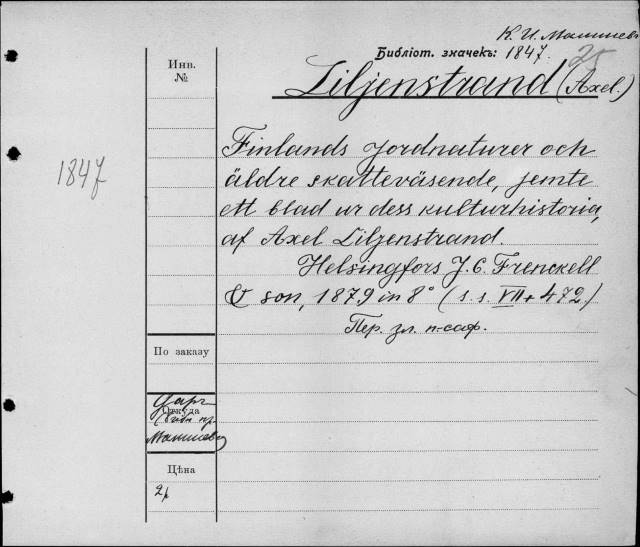 К. И. Малышев
Библіот. значекъ: 1847.
25
Инв.
№
Liljenstrand (Axel.)
1847
Finlands jordnaturer och
äldre skatteväsende, jemte
ett blad ur dess kulturhistoria,
af Axel Liljenstrand.
Helsingfors J. C. Frenckell
& son, 1879 in 8° (s. s. VII + 472.)
Пер. зл. п-саф.
По заказу
Откуда
Малышева
Цѣна
2р